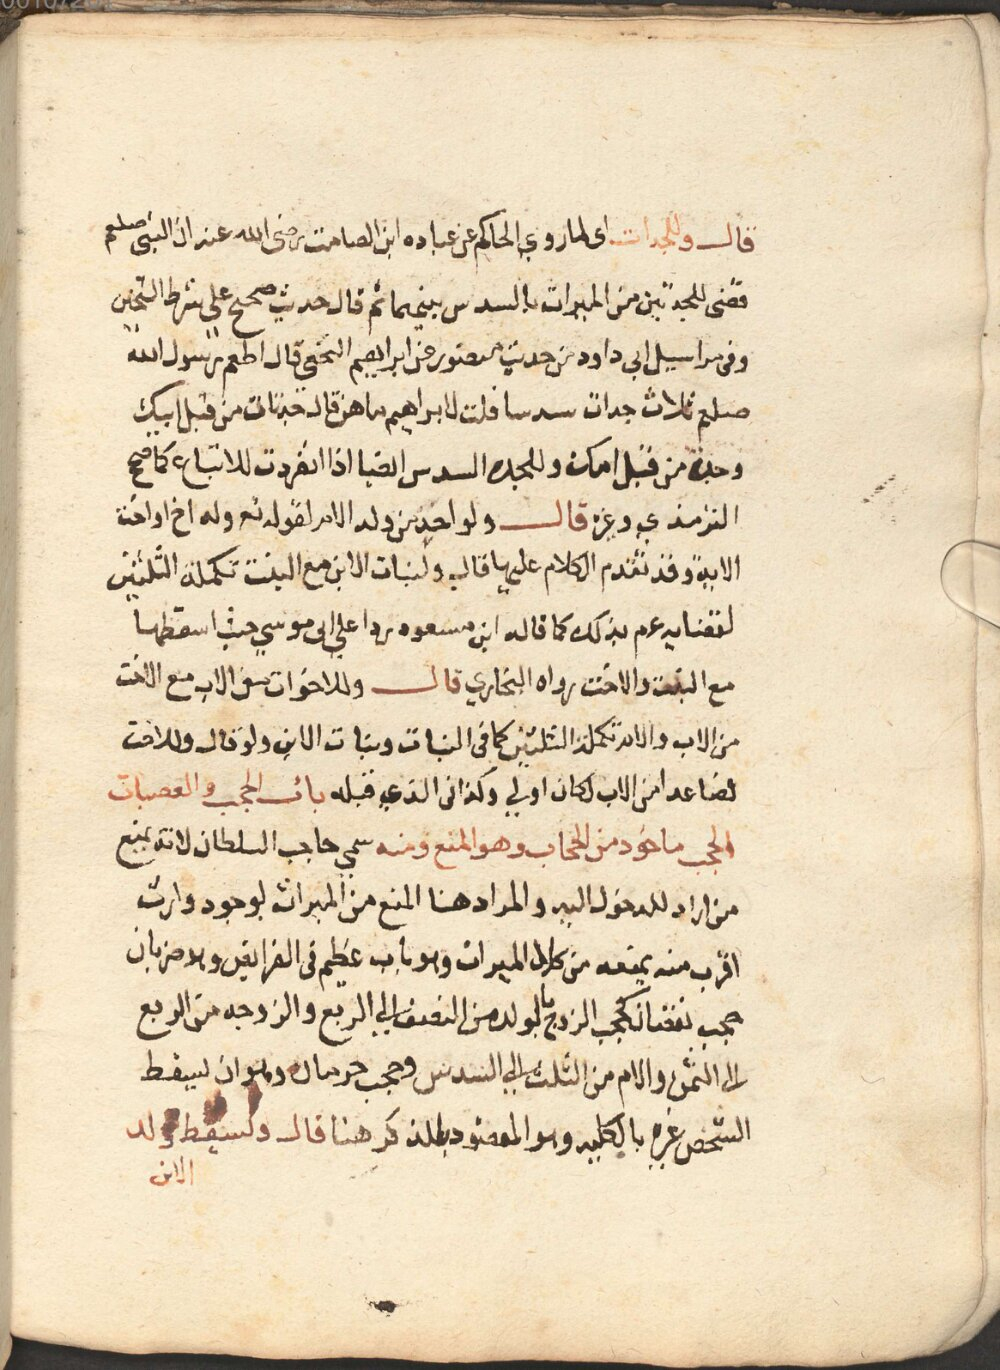 قال وللجدات اى لما روي الحاكم عن عباده ابن الصامت رضى الله عنه ان النبى صلعم
قضى للجدتين من الميراث بالسدس بينهما ثم قال حديث صحيح على شرط الشيخين
وفى مراسيل ابى داود من حديث منصور عن ابراهيم النخعى قال اطعم رسول الله
صلعم ثلاث جدات سدسا قلت لابراهيم ما هن قال جدتان من قبل ابيك
وجدة من قبل امك وللجده السدس ايضا اذا انفردت للاتباع كما صح
الترمذي وغيره قال ولواحد من ولد الام لقوله تع وله اخ او اخت
الاية وقد تقدم الكلام عليها قال ولبنات الابن مع البنت تكملة الثلثين
لقضايه عم بذلك كما قاله ابن مسعود ردا على ابى موسي حيث اسقطها
مع البنت والاخت رواه البخاري قال وللاخوات من الاب مع الاخت
من الاب والام تكملة الثلثين كما فى البنات وبنات الابن ولو قال وللاخت
فصاعدا من الاب لكان اولي وكذا فى الذي قبله باب الحجب والعصبات
الحجب ماخوذ من الحجاب وهو المنع ومنه سمي حاجب السلطان لانه يمنع
من اراد للدخول اليه والمراد هنا المنع من الميراث لوجود وارث
اقرب منه يمنعه من كل الميراث وهو باب عظيم فى الفرايض وهو ضربان
حجب نقصان كحجب الزوج بالولد من النصف الي الربع والزوجه من الربع
الى الثمن والام من الثلث الي السدس وحجب حرمان وهو ان يسقط
الشخص غيره بالكليه وهو المقصود بالذكر هنا قال ويسقط ولد
الابن